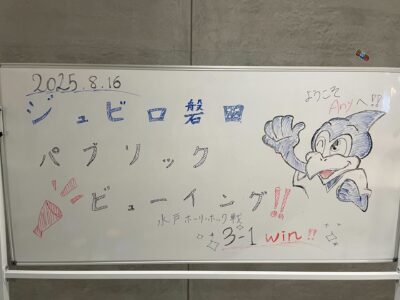 2025.8.16
ようこそ
Anyへ!!
ジュビロ磐田
パブリック
ビューイング!!
水戸ホーリーホック戦
3-1 win!!